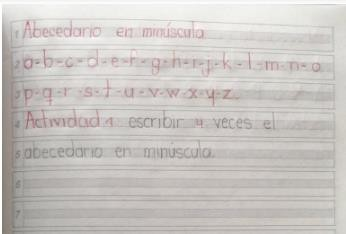 1 Abecedario en minúscula
2 a-b-c-d-e-f-g-h-i-j-k-l-m-n-o
3 p-q-r-s-t-u-v-w-x-y-z.
4 Actividad 1: escribir 4 veces el
5 abecedario en minúscula.
6
7